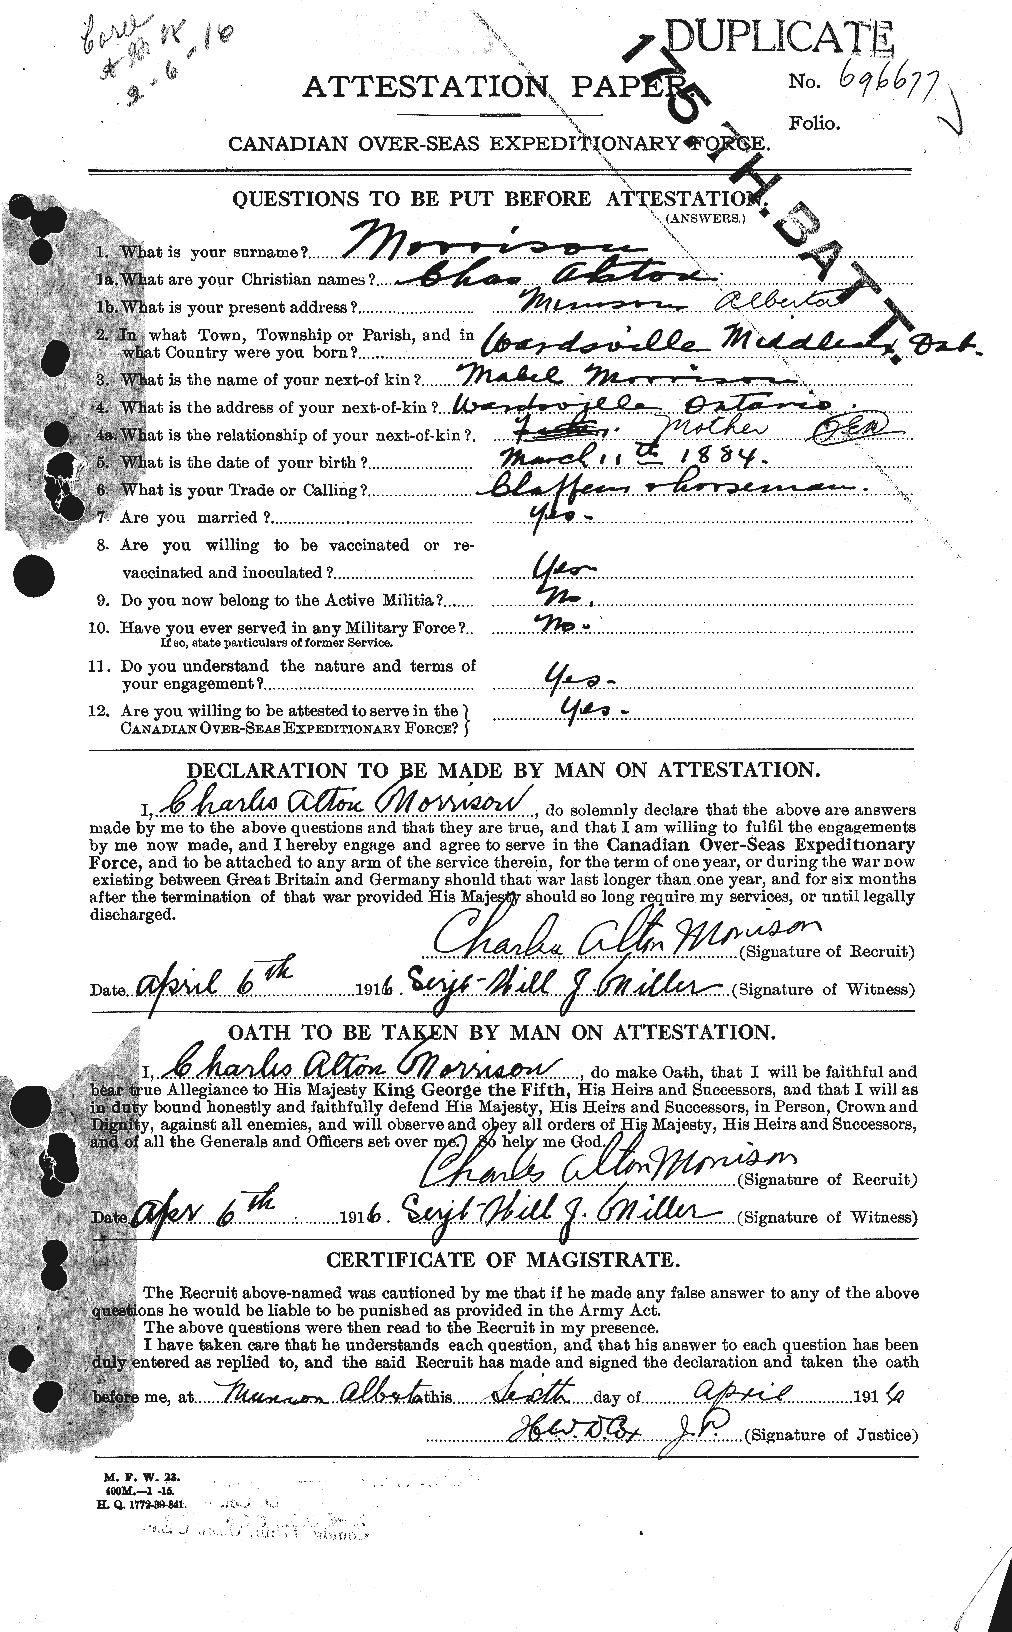 DUPLICATE
No. 696677
ATTESTATION PAPER.
Folio.
175TH. BATT.
CANADIAN OVER-SEAS EXPEDITIONARY FORCE.
QUESTIONS TO BE PUT BEFORE ATTESTATION.
(ANSWERS.)
1. What is your surname? Morrison
1a. What are your Christian names? Chas Alton
1b. What is your present address? Munson Alberta
2. In what Town, Township or Parish, and in
what Country were you born? Wardsville Middlesex Ont.
3. What is the name of your next-of kin? Mabel Morrison
4. What is the address of your next-of-kin? Wardsville Ontario.
4a. What is the relationship of your next-of-kin? Mother
5. What is the date of your birth? March 11th 1884.
6. What is your Trade or Calling? horseman.
7. Are you married? Yes-
8. Are you willing to be vaccinated or re-
vaccinated and inoculated? Yes
9. Do you now belong to the Active Militia? No.
10. Have you ever served in any Military Force? No-
If so, state particulars of former Service.
11. Do you understand the nature and terms of
your engagement? Yes-
12. Are you willing to be attested to serve in the
CANADIAN OVER-SEAS EXPEDITIONARY FORCE? Yes-
DECLARATION TO BE MADE BY MAN ON ATTESTATION.
I, Charles Alton Morrison, do solemnly declare that the above are answers
made by me to the above questions and that they are true, and that I am willing to fulfil the engagements
by me now made, and I hereby engage and agree to serve in the Canadian Over-Seas Expeditionary
Force, and to be attached to any arm of the service therein, for the term of one year, or during the war now
existing between Great Britain and Germany should that war last longer than one year, and for six months
after the termination of that war provided His Majesty should so long require my services, or until legally
discharged.
Charles Alton Morrison (Signature of Recruit)
Date April 6th 1916. Serjt Will J. Miller (Signature of Witness)
OATH TO BE TAKEN BY MAN ON ATTESTATION.
I, Charles Alton Morrison, do make Oath, that I will be faithful and
bear true Allegiance to His Majesty King George the Fifth, His Heirs and Successors, and that I will as
in duty bound honestly and faithfully defend His Majesty, His Heirs and Successors, in Person, Crown and
Dignity, against all enemies, and will observe and obey all orders of His Majesty, His Heirs and Successors,
and of all the Generals and Officers set over me. So help me God.
Charles Alton Morrison (Signature of Recruit)
Date Apr 6th 1916. Serjt Will J. Miller (Signature of Witness)
CERTIFICATE OF MAGISTRATE.
The Recruit above-named was cautioned by me that if he made any false answer to any of the above
questions he would be liable to be punished as provided in the Army Act.
The above questions were then read to the Recruit in my presence.
I have taken care that he understands each question, and that his answer to each question has been
duly entered as replied to, and the said Recruit has made and signed the declaration and taken the oath
before me, at Munson Alberta this Sixth day of April 1916
Cox J.P. (Signature of Justice)
M. F. W. 23.
400M.—1-15.
H. Q. 1772-39-841.